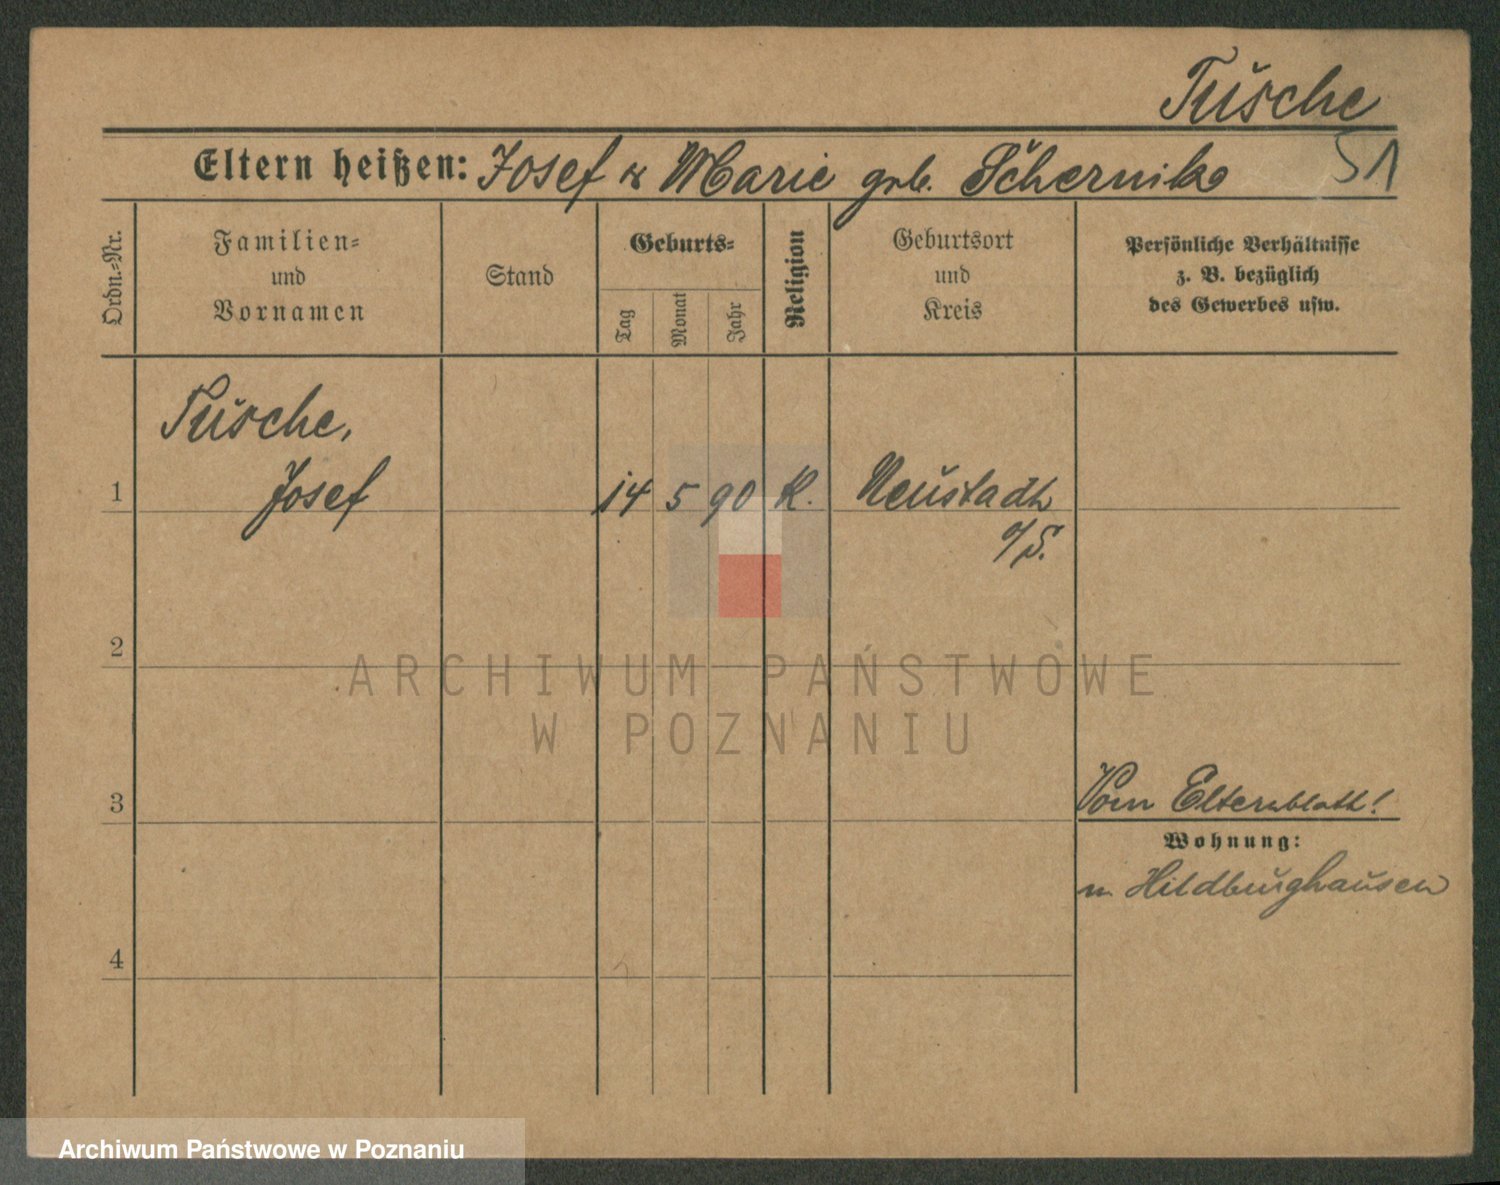 Tusche
Eltern heißen: Josef u Marie geb. Schernik
51
Ordn.=Nr.
Familien=
und
Vornamen
Stand
Geburts=
Tag
Monat
Jahr
Religion
Geburtsort
und
Kreis
Persönliche Verhältnisse
z. B. bezüglich
des Gewerbes usw.
Tusche,
1 Josef 14 5 90 K. Neustadt
o/S.
2
ARCHIWUM PAŃSTWOWE
W POZNANIU
3
Vom Elternblatt!
Wohnung:
n. Hildburghausen
4
Archiwum Państwowe w Poznaniu